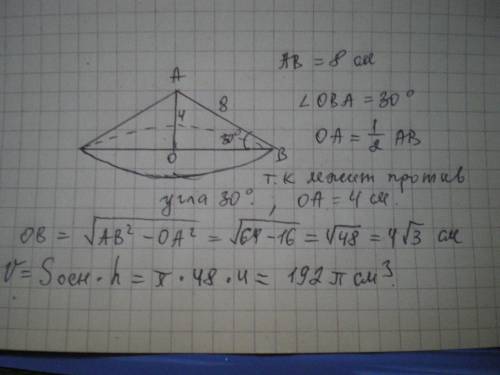 AB = 8 см
A
8
∠OBA = 30°
4
30°
OA = 1/2 AB
O
B
т.к лежит против
угла 30°, OA = 4 см.
OB = √(AB² − OA²) = √(64 − 16) = √48 = 4√3 см
V = Sосн · h = π · 48 · 4 = 192 π см³.